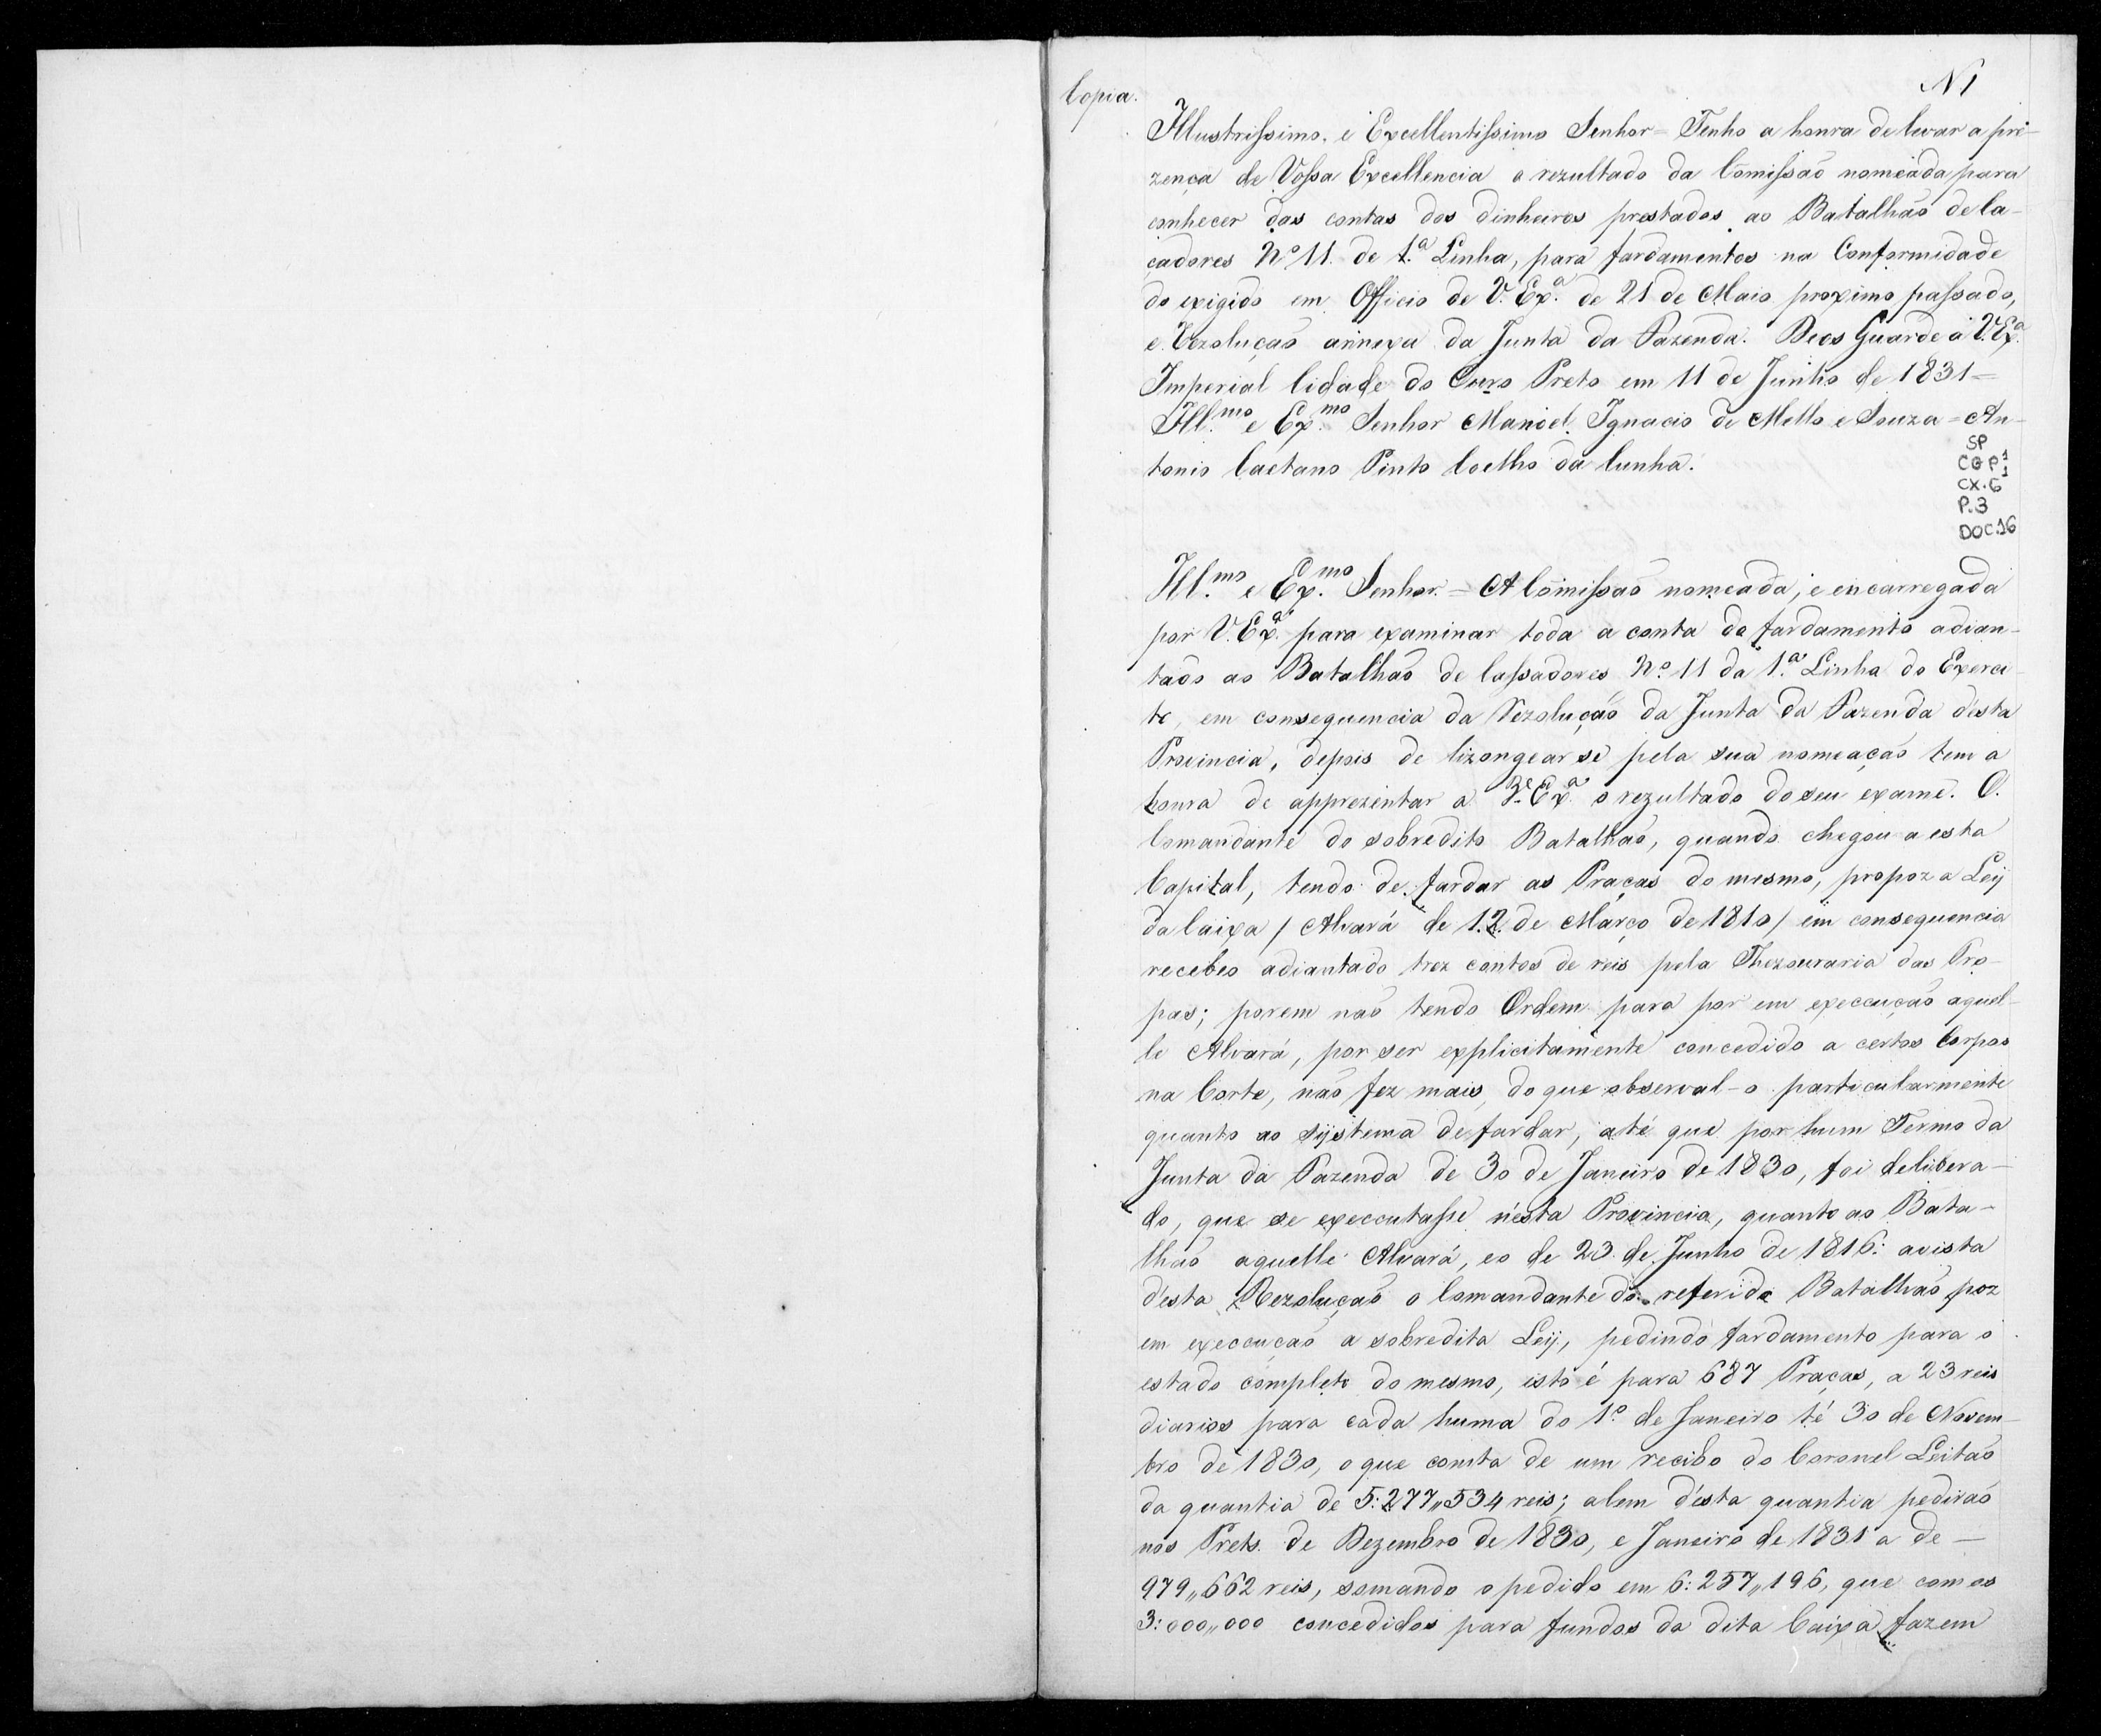 Copia.
N1
Illustrissimo, e Excellentissimo Senhor = Tenho a honra de levar a pre-
zença de Vossa Excellencia o rezultado da Comissaõ nomeada para
conhecer das contas dos dinheiros prestados ao Batalhaõ de Ca-
çadores Nº 11. de 1.ª Linha, para fardamentos na Conformidade
do exigido em Officio de V. Ex.ª de 21 de Maio proximo passado,
e Rezoluçaõ annexa da Junta da Fazenda. Deos Guarde a V. Ex.ª
Imperial Cidade do Ouro Preto em 11 de Junho de 1831 =
Ill.mo e Ex.mo Senhor Manoel Ignacio de Mello e Souza = An-
tonio Caetano Pinto Coelho da Cunha.
SP
CGP 1
CX. 6 1
P. 3
DOC. 16
Ill.mo e Ex.mo Senhor. = A Comissaõ nomeada, e encarregada
por V. Ex.ª para examinar toda a conta do fardamento adian-
tado ao Batalhaõ de Cassadores Nº 11 da 1.ª Linha do Exerci-
to, em consequencia da Rezoluçaõ da Junta da Fazenda desta
Provincia, depois de lizongear se pela sua nomeaçaõ tem a
honra de apprezentar a V. Ex.ª o rezultado do seu exame. O
Comandante do sobredito Batalhaõ, quando chegou a esta
Capital, tendo de fardar as Praças do mesmo, propoz a Leÿ
da Caixa / Alvará de 12 de Março de 1810 / em consequencia
recebeo adiantado trez contos de reis pela Thezouraria das Tro-
pas; porem naõ tendo Ordem para por em execcuçaõ aquel-
le Alvará, por ser explicitamente concedido a certos Corpos
na Corte, naõ fez mais, do que observal-o particularmente
quanto ao sÿstema de fardar, até que por hum Termo da
Junta da Fazenda de 30 de Janeiro de 1830, foi delibera-
do, que se execcutasse n'esta Provincia, quanto ao Bata-
lhaõ aquelle Alvará, eo de 23 de Junho de 1816: avista
d'esta Rezoluçaõ o Comandante do referido Batalhaõ poz
em execcuçaõ a sobredita Leÿ, pedindo fardamento para o
estado completo do mesmo, isto é para 687 Praças, a 23 reis
diarios para cada huma do 1º de Janeiro té 30 de Novem-
bro de 1830, o que consta de um recibo do Coronel Leitaõ
da quantia de 5:277,,534 reis; alem d'esta quantia pediraõ
nos Prets de Dezembro de 1830, e Janeiro de 1831 a de —
979,,662 reis, somando o pedido em 6:257,,196, que com os
3:000,,000 concedidos para fundos da dita Caixa fazem